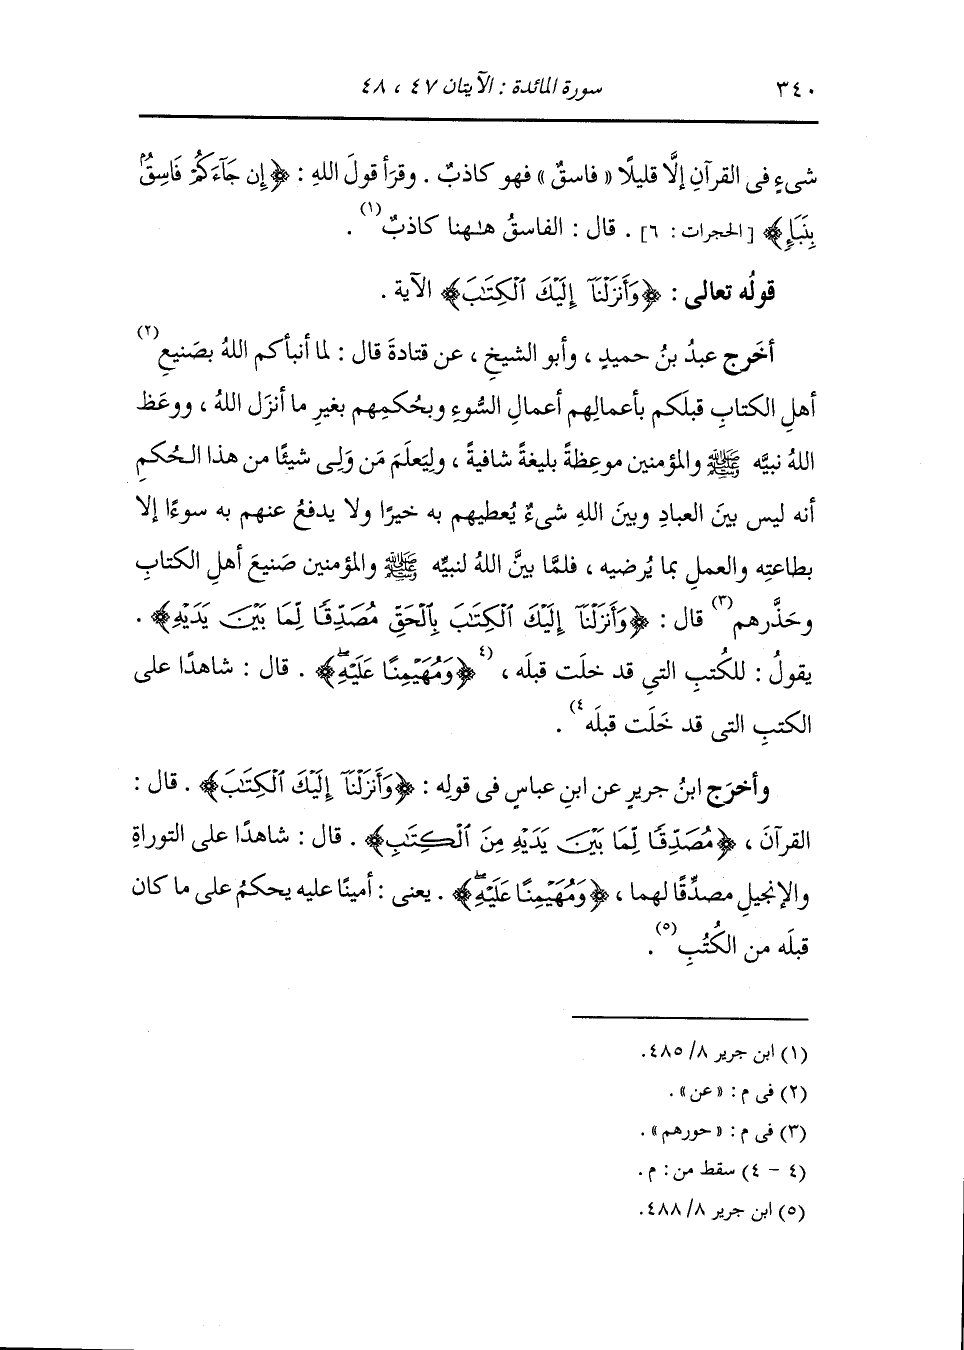 ٣٤٠ سورة المائدة : الآيتان ٤٧ ، ٤٨
شىءٍ فى القرآنِ إلَّا قليلًا « فاسقٌ » فهو كاذبٌ . وقرَأ قولَ اللهِ : ﴿إِن جَآءَكُمْ فَاسِقٌۢ
بِنَبَإٍ﴾ [الحجرات : ٦] . قال : الفاسقُ هـٰهنا كاذبٌ(١) .
قولُه تعالى : ﴿وَأَنزَلْنَآ إِلَيْكَ ٱلْكِتَـٰبَ﴾ الآية .
أخَرج عبدُ بنُ حميدٍ ، وأبو الشيخِ ، عن قتادةَ قال : لما أنبأكم اللهُ بصَنيعِ(٢)
أهلِ الكتابِ قبلَكم بأعمالِهم أعمالِ السُّوءِ وبحُكمِهم بغيرِ ما أنزَل اللهُ ، ووعَظ
اللهُ نبيَّه ﷺ والمؤمنين موعِظةً بليغةً شافيةً ، ولِيَعلَمَ مَن وَلِى شيئًا من هذا الحُكمِ
أنه ليس بينَ العبادِ وبينَ اللهِ شىءٌ يُعطيهم به خيرًا ولا يدفعُ عنهم به سوءًا إلا
بطاعتِه والعملِ بما يُرضيه ، فلمَّا بيَّن اللهُ لنبيِّه ﷺ والمؤمنين صَنيعَ أهلِ الكتابِ
وحَذَّرهم(٣) قال : ﴿وَأَنزَلْنَآ إِلَيْكَ ٱلْكِتَـٰبَ بِٱلْحَقِّ مُصَدِّقًا لِّمَا بَيْنَ يَدَيْهِ﴾ .
يقولُ : للكُتبِ التى قد خلَت قبلَه ، (٤﴿وَمُهَيْمِنًا عَلَيْهِۖ﴾ . قال : شاهدًا على
الكتبِ التى قد خَلَت قبلَه٤) .
وأخرَج ابنُ جريرٍ عن ابنِ عباسٍ فى قولِه : ﴿وَأَنزَلْنَآ إِلَيْكَ ٱلْكِتَـٰبَ﴾ . قال :
القرآنَ ، ﴿مُصَدِّقًا لِّمَا بَيْنَ يَدَيْهِ مِنَ ٱلْكِتَـٰبِ﴾ . قال : شاهدًا على التوراةِ
والإنجيلِ مصدِّقًا لهما ، ﴿وَمُهَيْمِنًا عَلَيْهِۖ﴾ . يعنى : أمينًا عليه يحكمُ على ما كان
قبلَه من الكُتُبِ(٥) .
(١) ابن جرير ٨/ ٤٨٥.
(٢) فى م : «عن» .
(٣) فى م : «حورهم» .
(٤ - ٤) سقط من : م .
(٥) ابن جرير ٨/ ٤٨٨.